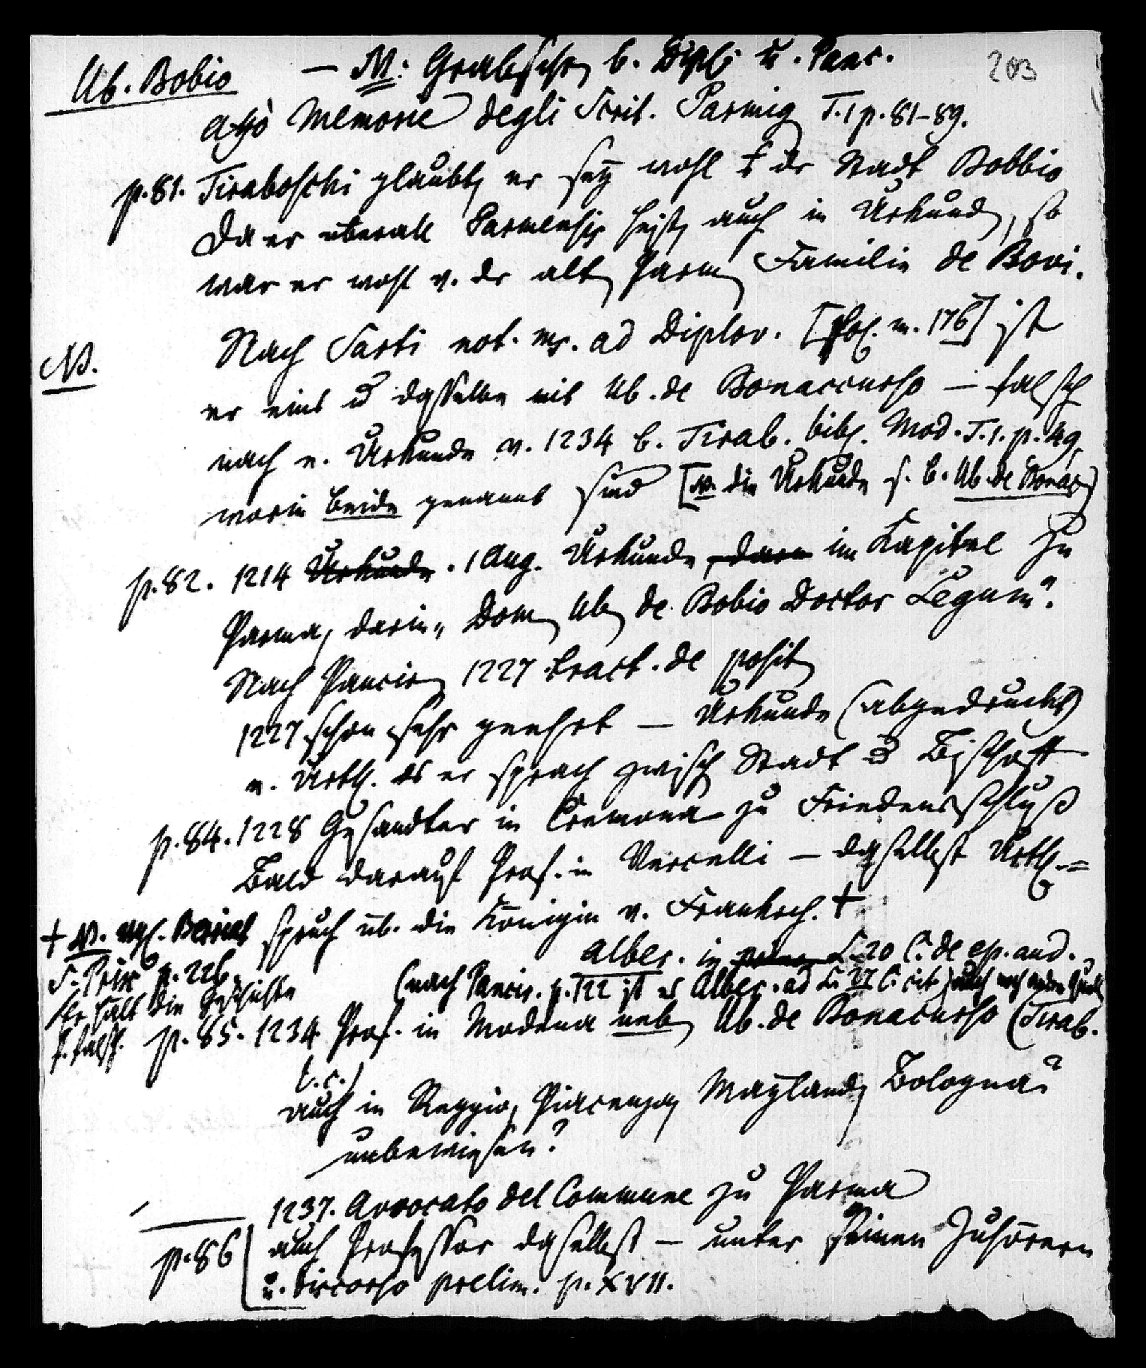 Ub. Bobio — N: Grabschr. b. Dipl. u. Panc. 203
Affò Memorie degli Scrit. Parmig. T. 1 p. 81–89.
p. 81. Tiraboschi glaubt, er sey wohl der Stadt Bobbio
Da er überall Parmensis heißt, auch in Urkunden, so
war er wohl v. der alten Parm. Familie de Bovi.
N. Nach Sarti not. ms. ad Diplov. [Fol. m. 176] ist
er eins u dasselbe mit Ub. de Bonaccurso — falsch
nach e. Urkunde v. 1234 b. Tirab. bibl. Mod. T. 1. p. 49
worin beide genannt sind [N. die Urkunde s. b. Ub. de Bonac.]
p. 82. 1214 Urkunde. 1 Aug. Urkunde, darin im Kapitel zu
Parma, darin „Dom. Ub. de Bobio Doctor Legum".
Nach Pancir. 1227 tract. de posit.
1227 schon sehr geehrt — Urkunde (abgedruckt)
e. Urth. das er sprach zwisch. Stadt u Bischoff
p. 84. 1228 Gesandter in Cremona zu Friedensschluß
Bald darauf Prof. in Vercelli — daselbst Urth.=
spruch üb. die Königin v. Frankrch. +
+ N. vgl. Berriat
S. Prix p. 226
Er hält die Geschichte
f. falsch.
Alber. in L. 20 C. de ep. aud.
(nach Pancir. p. 122 ist es Alber. ad L. 27 C. cit.) auch nach andern
p. 85. 1234 Prof. in Modena neben Ub. de Bonacurso (Tirab.
l. c.)
auch in Reggio, Piacenza, Mayland, Bologna?
unbewiesen?
1237. Avvocato del Commune zu Parma
p. 86 auch Professor daselbst — unter seinen Zuhörern
u. Discorso prelim. p. XVII.